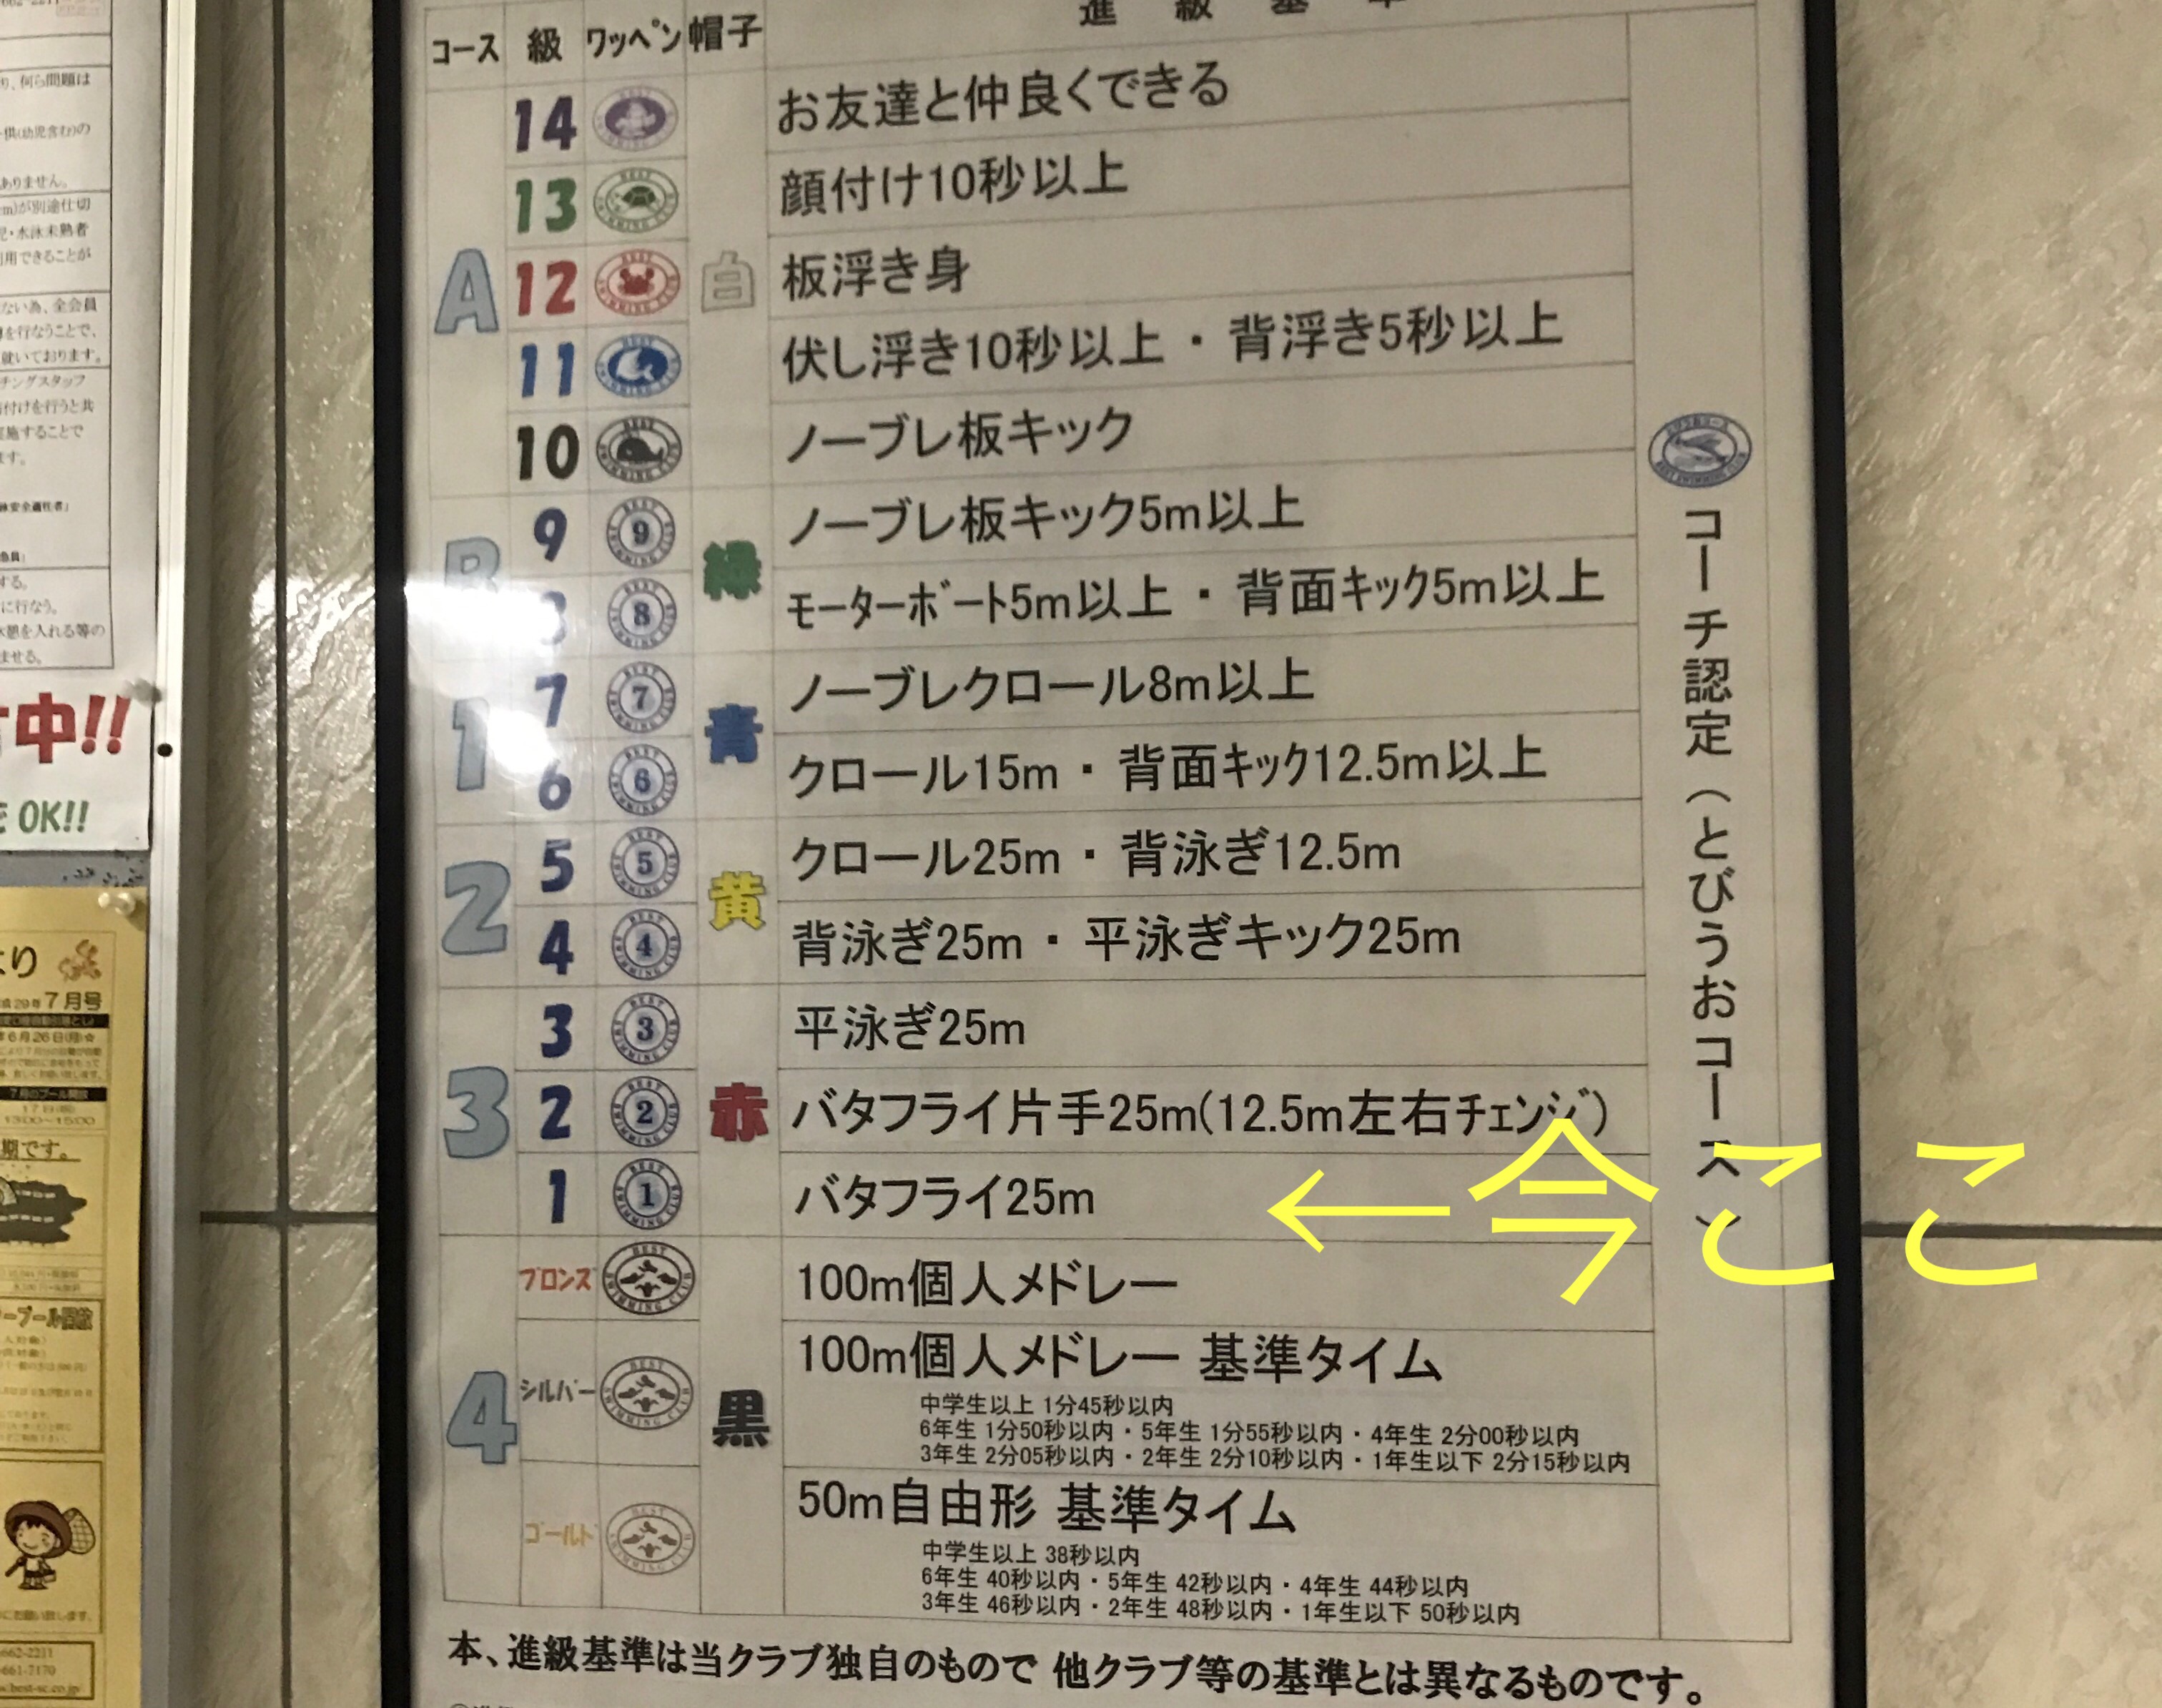 進 級 基 準
コース 級 ワッペン 帽子
A
14 お友達と仲良くできる
13 顔付け10秒以上
12 白 板浮き身
11 伏し浮き10秒以上・背浮き5秒以上
10 ノーブレ板キック
B
9 9 緑 ノーブレ板キック5m以上
8 8 モーターボート5m以上・背面キック5m以上
1
7 7 青 ノーブレクロール8m以上
6 6 クロール15m・背面キック12.5m以上
2
5 5 黄 クロール25m・背泳ぎ12.5m
4 4 背泳ぎ25m・平泳ぎキック25m
3
3 3 平泳ぎ25m
2 2 赤 バタフライ片手25m(12.5m左右チェンジ)
1 1 バタフライ25m
←今ここ
4
ブロンズ 100m個人メドレー
シルバー 黒 100m個人メドレー 基準タイム
中学生以上 1分45秒以内
6年生 1分50秒以内・5年生 1分55秒以内・4年生 2分00秒以内
3年生 2分05秒以内・2年生 2分10秒以内・1年生以下 2分15秒以内
ゴールド 50m自由形 基準タイム
中学生以上 38秒以内
6年生 40秒以内・5年生 42秒以内・4年生 44秒以内
3年生 46秒以内・2年生 48秒以内・1年生以下 50秒以内
コーチ認定(とびうおコース)
本、進級基準は当クラブ独自のもので 他クラブ等の基準とは異なるものです。
何ら問題は
ありません。
ない為、全会員
を行なうことで、
就いております。
チングスタッフ
施することで
ます。
する。
に行なう。
休憩を入れる等の
ませる。
中!!
OK!!
より
7月号
6月26日(月)☆
7月のプール開放
13:00～15:00
期です。
662-2211
661-7170